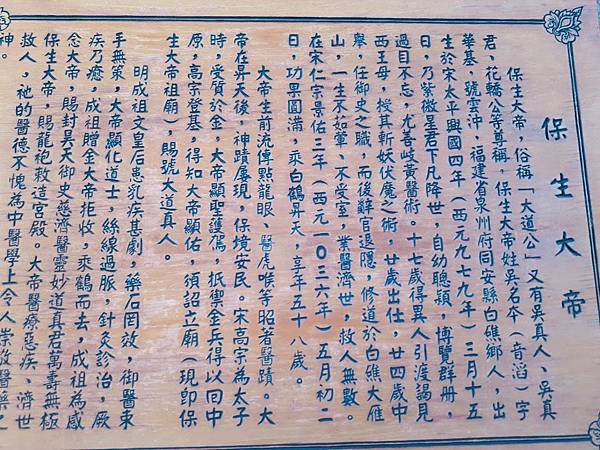 保生大帝
保生大帝，俗稱「大道公」又有吳真人、吳真
君、花轎公等尊稱，保生大帝姓吳名本（音滔）字
華基，號雲沖，福建省泉州府同安縣白礁鄉人，出
生於宋太平興國四年（西元九七九年）三月十五
日，乃紫微星君下凡降世，自幼聰穎，博覽群册，
過目不忘，尤善岐黃醫術。十七歲得異人引渡謁見
西王母，授其斬妖伏魔之術，廿歲出仕，廿四歲中
舉，任御史之職，而後辭官退隱，修道於白礁大雁
山，一生不茹葷、不受室，業醫濟世，救人無數。
在宋仁宗景佑三年（西元一0三六年）五月初二
日，功果圓滿，乘白鶴昇天，享年五十八歲。
大帝生前流傳點龍眼、醫虎喉等昭著醫蹟。大
帝在昇天後，神蹟屢現，保境安民。宋高宗為太子
時，受質於金，大帝顯聖護駕，抵禦金兵得以回中
原，高宗登基，得知大帝顯佑，頒詔立廟（現卽保
生大帝祖廟），賜號大道真人。
明成祖文皇后患乳疾甚劇，藥石罔效，御醫束
手無策，大帝顯化道士，絲線過脈，針灸診治，厥
疾乃癒，成祖贈金大帝拒收，乘鶴而去，成祖為感
念大帝，賜封昊天御史慈濟醫靈妙道真君萬壽無極
保生大帝，賜龍袍救造宮殿。大帝醫療惡疾、濟世
救人，祂的醫德不愧為中醫學上令人崇敬醫藥之
神。